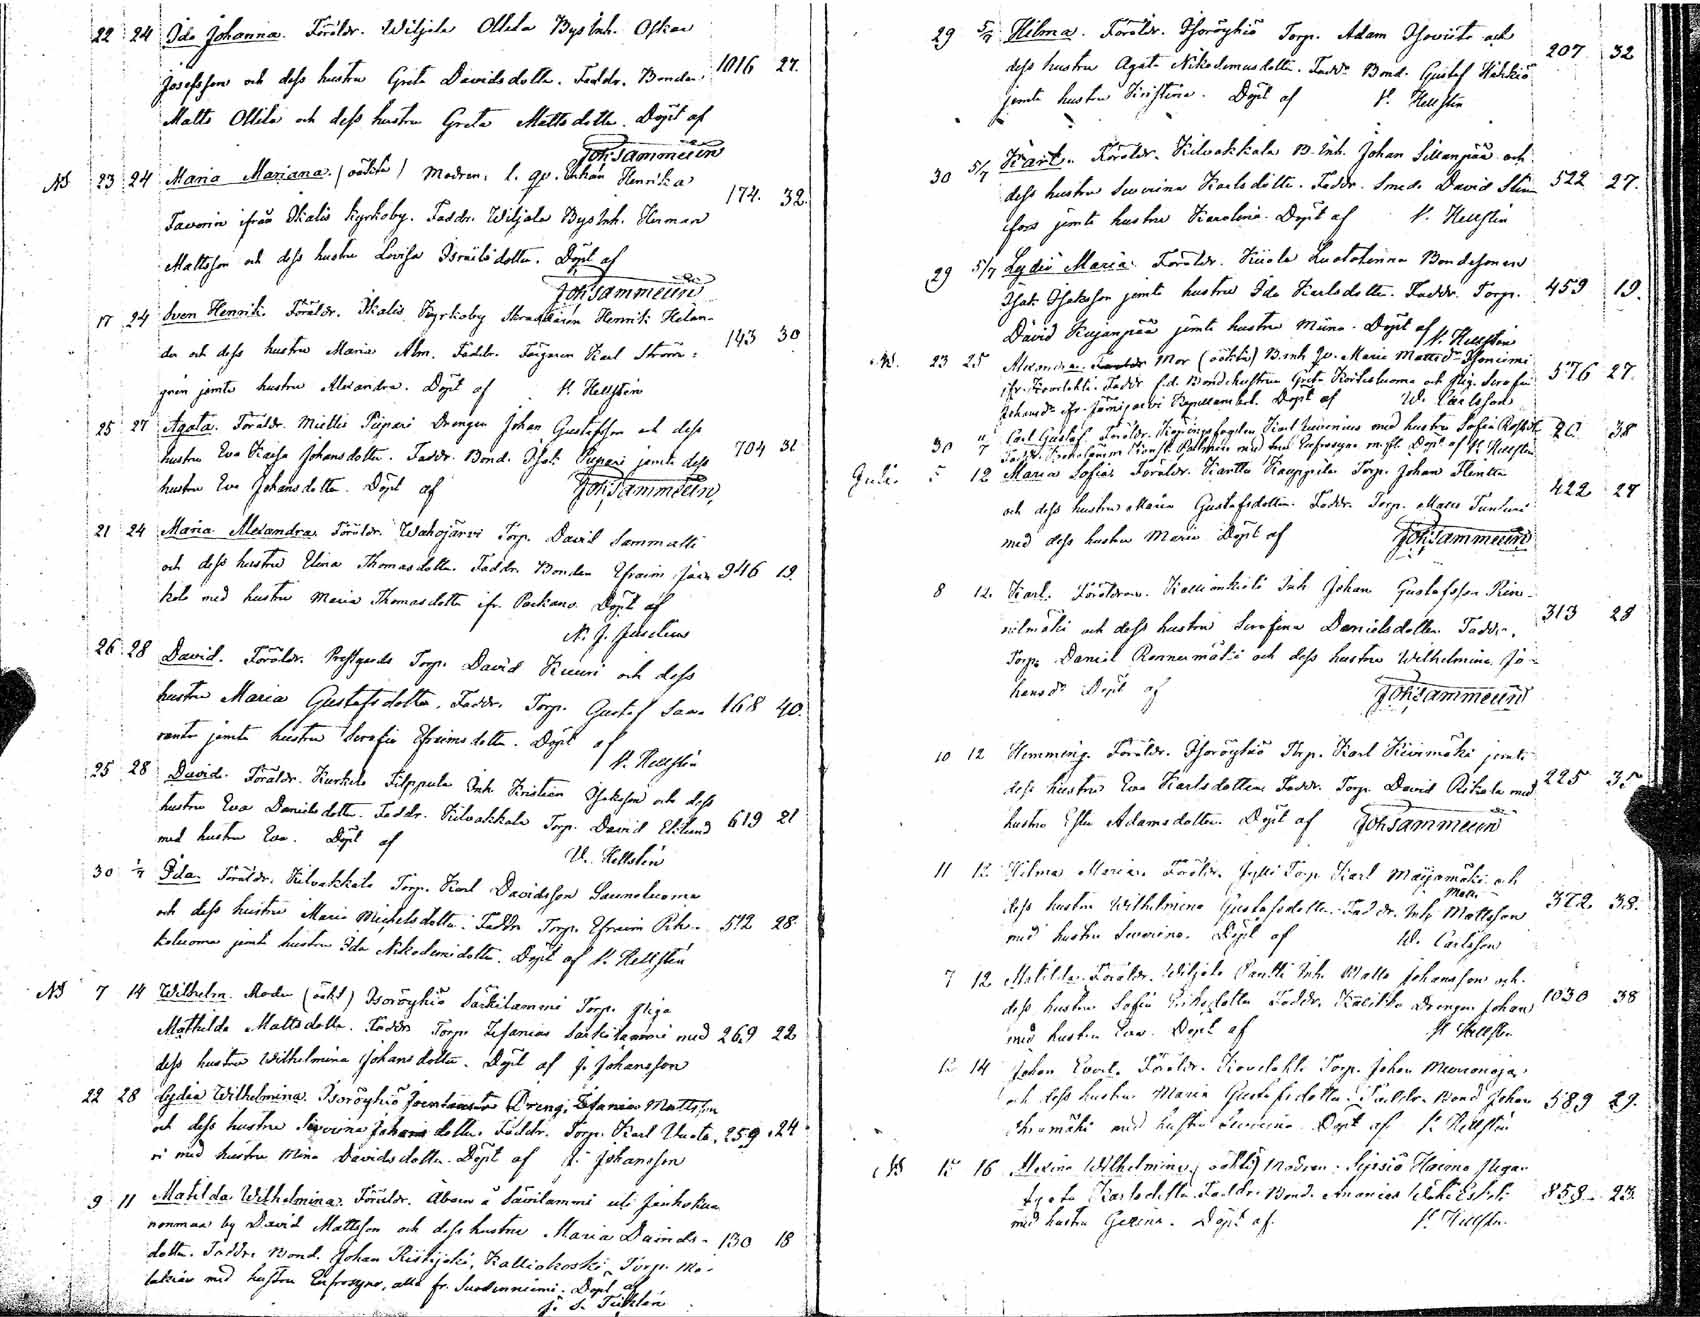 22 24 Ida Johanna. Föräldr. Wiljala Ollila Bys Inh. Oskar
Josefsson och dess hustru Greta Davidsdotter. Faddr. Bonden 1016 27.
Matts Ollila och dess hustru Greta Mattsdotter. Döpt af
Joh. Sammelin
NB 23 24 Maria Mariana. (oäkta) Modren: Henrika 174. 32.
Favorin ifrån Ikalis Kyrkoby. Faddr. Wiljala Bys Inh. Herman
Mattsson och dess hustru Lovisa Israelsdotter. Döpt af
Joh. Sammelin
17 24 Sven Henrik. Föräldr. Ikalis Kyrkoby Skräddaren Henrik Helan-
der och dess hustru Maria Alm. Faddr. Färgaren Karl Ström- 143 30
grén jemte hustru Alexandra. Döpt af V. Hellstén
25 27 Agata. Föräldr. Miettis Piipari Drengen Johan Gustafsson och dess
hustru Eva Kajsa Johansdotter. Faddr. Bond. Isak Piipari jemte dess 704 31
hustru Eva Johansdotter. Döpt af Joh. Sammelin
21 24 Maria Alexandra. Föräldr. Wahojärvi Torp. David Sammatti
och dess hustru Elina Thomasdotter. Faddr. Bonden Efraim 946 19.
med hustru Maria Thomasdotter ifr. Parkano. Döpt af
N. J. Juselius
26 28 David. Föräldr. Prestgårds Torp. David Kuuri och dess
hustru Maria Gustafsdotter. Faddr. Torp. Gustaf Saa- 168 40.
ranta jemte hustru Serafia Efraimsdotter. Döpt af
V. Hellstén
25 28 David. Föräldr. Kurkela Filppula Inh. Kristian Isaksson och dess
hustru Eva Danielsdotter. Faddr. Kilvakkala Torp. David Eklund 619 21
med hustru Eva. Döpt af
V. Hellstén
30 1/7 Ida. Föräldr. Kilvakkala Torp. Karl Davidsson Saunaluoma
och dess hustru Maria Michelsdotter. Faddr. Torp. Efraim 572 28.
jemte hustru Ida Nikodemidotter. Döpt af V. Hellstén
NB 7 14 Wilhelm. Moder (oäkt) Isoröyhiö Särkilammi Torp. Piga
Mathilda Mattsdotter. Faddr. Torp. Zefanias Särkilammi med 269 22
dess hustru Wilhelmina Johansdotter. Döpt af J. Johansson
22 28 Lydia Wilhelmina. Isoröyhiö Dreng. Zefanias Mattsson
och dess hustru Severina Johansdotter. Faddr. Torp. Karl 259 24
med hustru Mina Davidsdotter. Döpt af J. Johansson
9 11 Matilda Wilhelmina. Föräldr. Åboen å Savilammi uti
by David Mattsson och dess hustru Maria Davids- 130 18
dotter. Faddr. Bond. Johan Ristijoki, Kalliokoski Torp. Ma-
lakias med hustru Eufrosyne, alla fr. Suodenniemi. Döpt af
29 5/7 Hilma. Föräldr. Isoröyhiö Torp. Adam och
dess hustru Agata Nikodemusdotter. Faddr. Bond. Gustaf 207 32
jemte hustru Kristina. Döpt af V. Hellstén
30 5/7 Karl. Föräldr. Kilvakkala B. Inh. Johan Sillanpää och
dess hustru Severina Karlsdotter. Faddr. Smed. David 522 27.
fors jemte hustru Karolina. Döpt af V. Hellstén
29 5/7 Lydia Maria. Föräldr. Kiiala Luotolinna Bondesonen
Isak Isaksson jemte hustru Ida Karlsdotter. Faddr. Torp. 459 19.
David Kujanpää jemte hustru Mina. Döpt af V. Hellstén
NB. 23 25 Alexandra. Mor (oäkta) B. inh. Maria Mattsdr 576 27.
Faddr. f.d. Bondehustrun Greta och Pig. Serafia
Döpt af W. Carlsson
30 7 Carl Gustaf. Föräldr. Karl med hustru Sofia 20. 38
Döpt af V. Hellstén
Juli. 5 12 Maria Sofia. Föräldr. Kartto Kauppila Torp. Johan
och dess hustru Maria Gustafsdotter. Faddr. Torp. 422 27
med dess hustru Maria. Döpt af Joh. Sammelin
8 12. Karl. Föräldrar. Inh. Johan Gustafsson
och dess hustru Serafina Danielsdotter. Faddr. 313 28
Torp. Daniel och dess hustru Wilhelmina Jo-
hansdr. Döpt af Joh. Sammelin
10 12 Hemming. Föräldr. Isoröyhiö Torp. Karl jemte
dess hustru Eva Karlsdotter. Faddr. Torp. David med 225 35
hustru Ester Adamsdotter. Döpt af Joh. Sammelin
11 12 Hilma Maria. Föräldr. Jylli Torp. Karl Maijamäki och
dess hustru Wilhelmina Gustafsdotter. Faddr. Inh. Matts Mattsson 372. 38.
med hustru Severina. Döpt af W. Carlsson
7 12 Matilda. Föräldr. Wiljala Inh. Matts Johansson och
dess hustru Sofia Faddr. Drengen Johan 1030 38
med hustru Eva. Döpt af V. Hellstén
12 14 Johan Evert. Föräldr. Kovelahti Torp. Johan
och dess hustru Maria Gustafsdotter. Faddr. Bond. Johan 589 29.
med hustru Severina. Döpt af V. Hellstén
NB 15 16 Alexina Wilhelmina, oäkta, Modren: Sipsiö Pigan
Agata Karlsdotter. Faddr. Bond. Ananias 858 23.
med hustru Gezina. Döpt af V. Hellstén